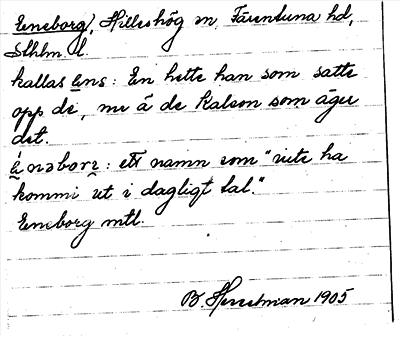 Eneborg, Hilleshög sn, Färentuna hd,
Sthlm l.
kallas ens: En hette han som satte
opp de, nu ä de Kalson som äger
det.
enaborg: ett namn som "inte ha
kommi ut i dagligt tal."
Eneborg mtl.
B. Hesselman 1905